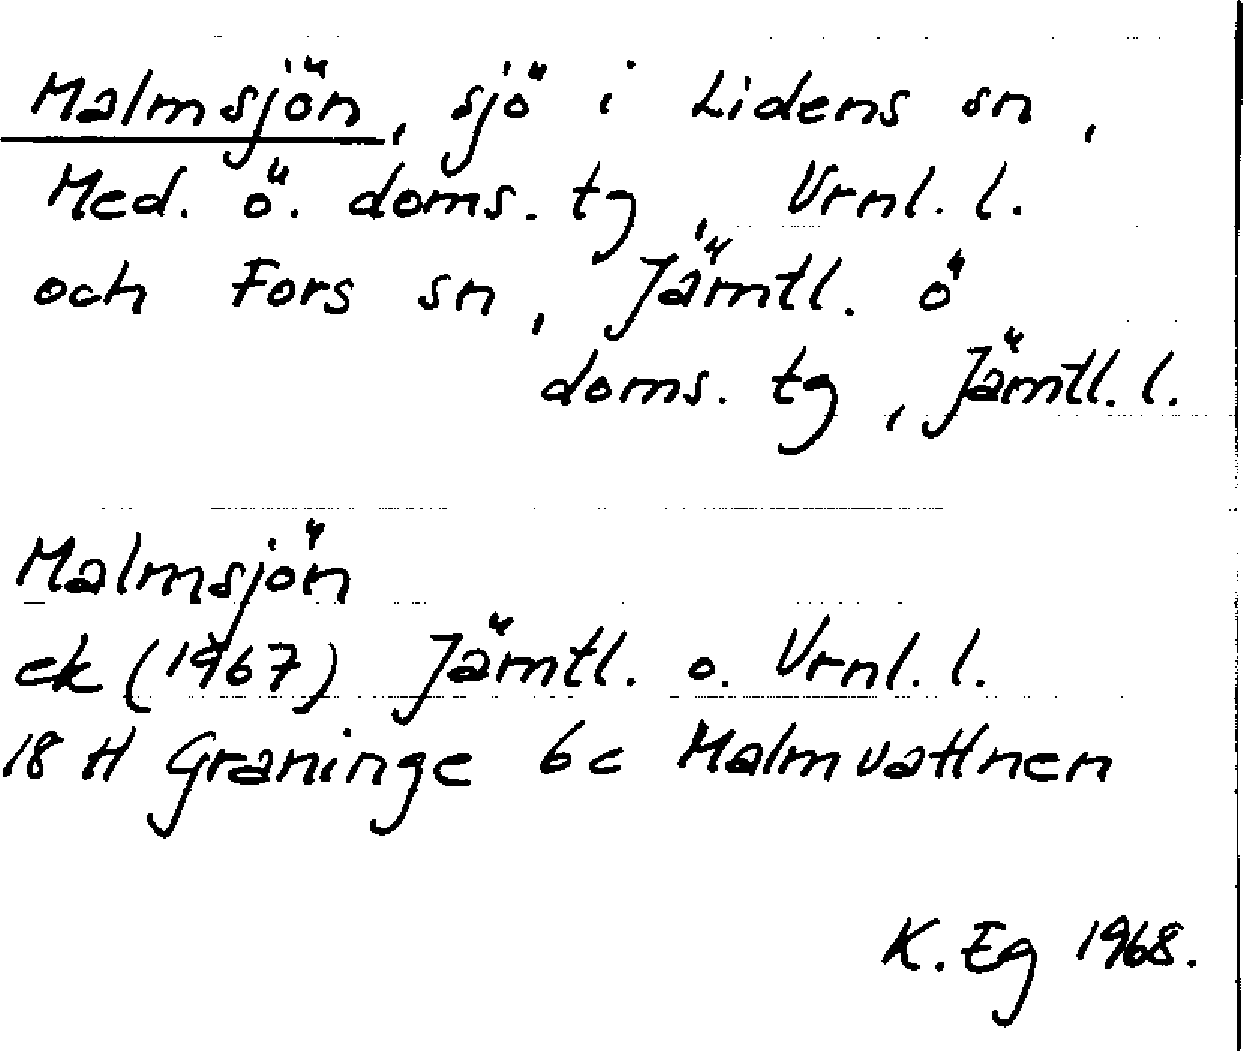 Malmsjön, sjö i Lidens sn,
Med. ö. doms. tg, Vrnl. l.
och Fors sn, Jämtl. ö
doms. tg, Jämtl. l.
Malmsjön
ek (1967) Jämtl. o. Vrnl. l.
18 H Graninge 6c Malmvattnen
K. Eg 1968.